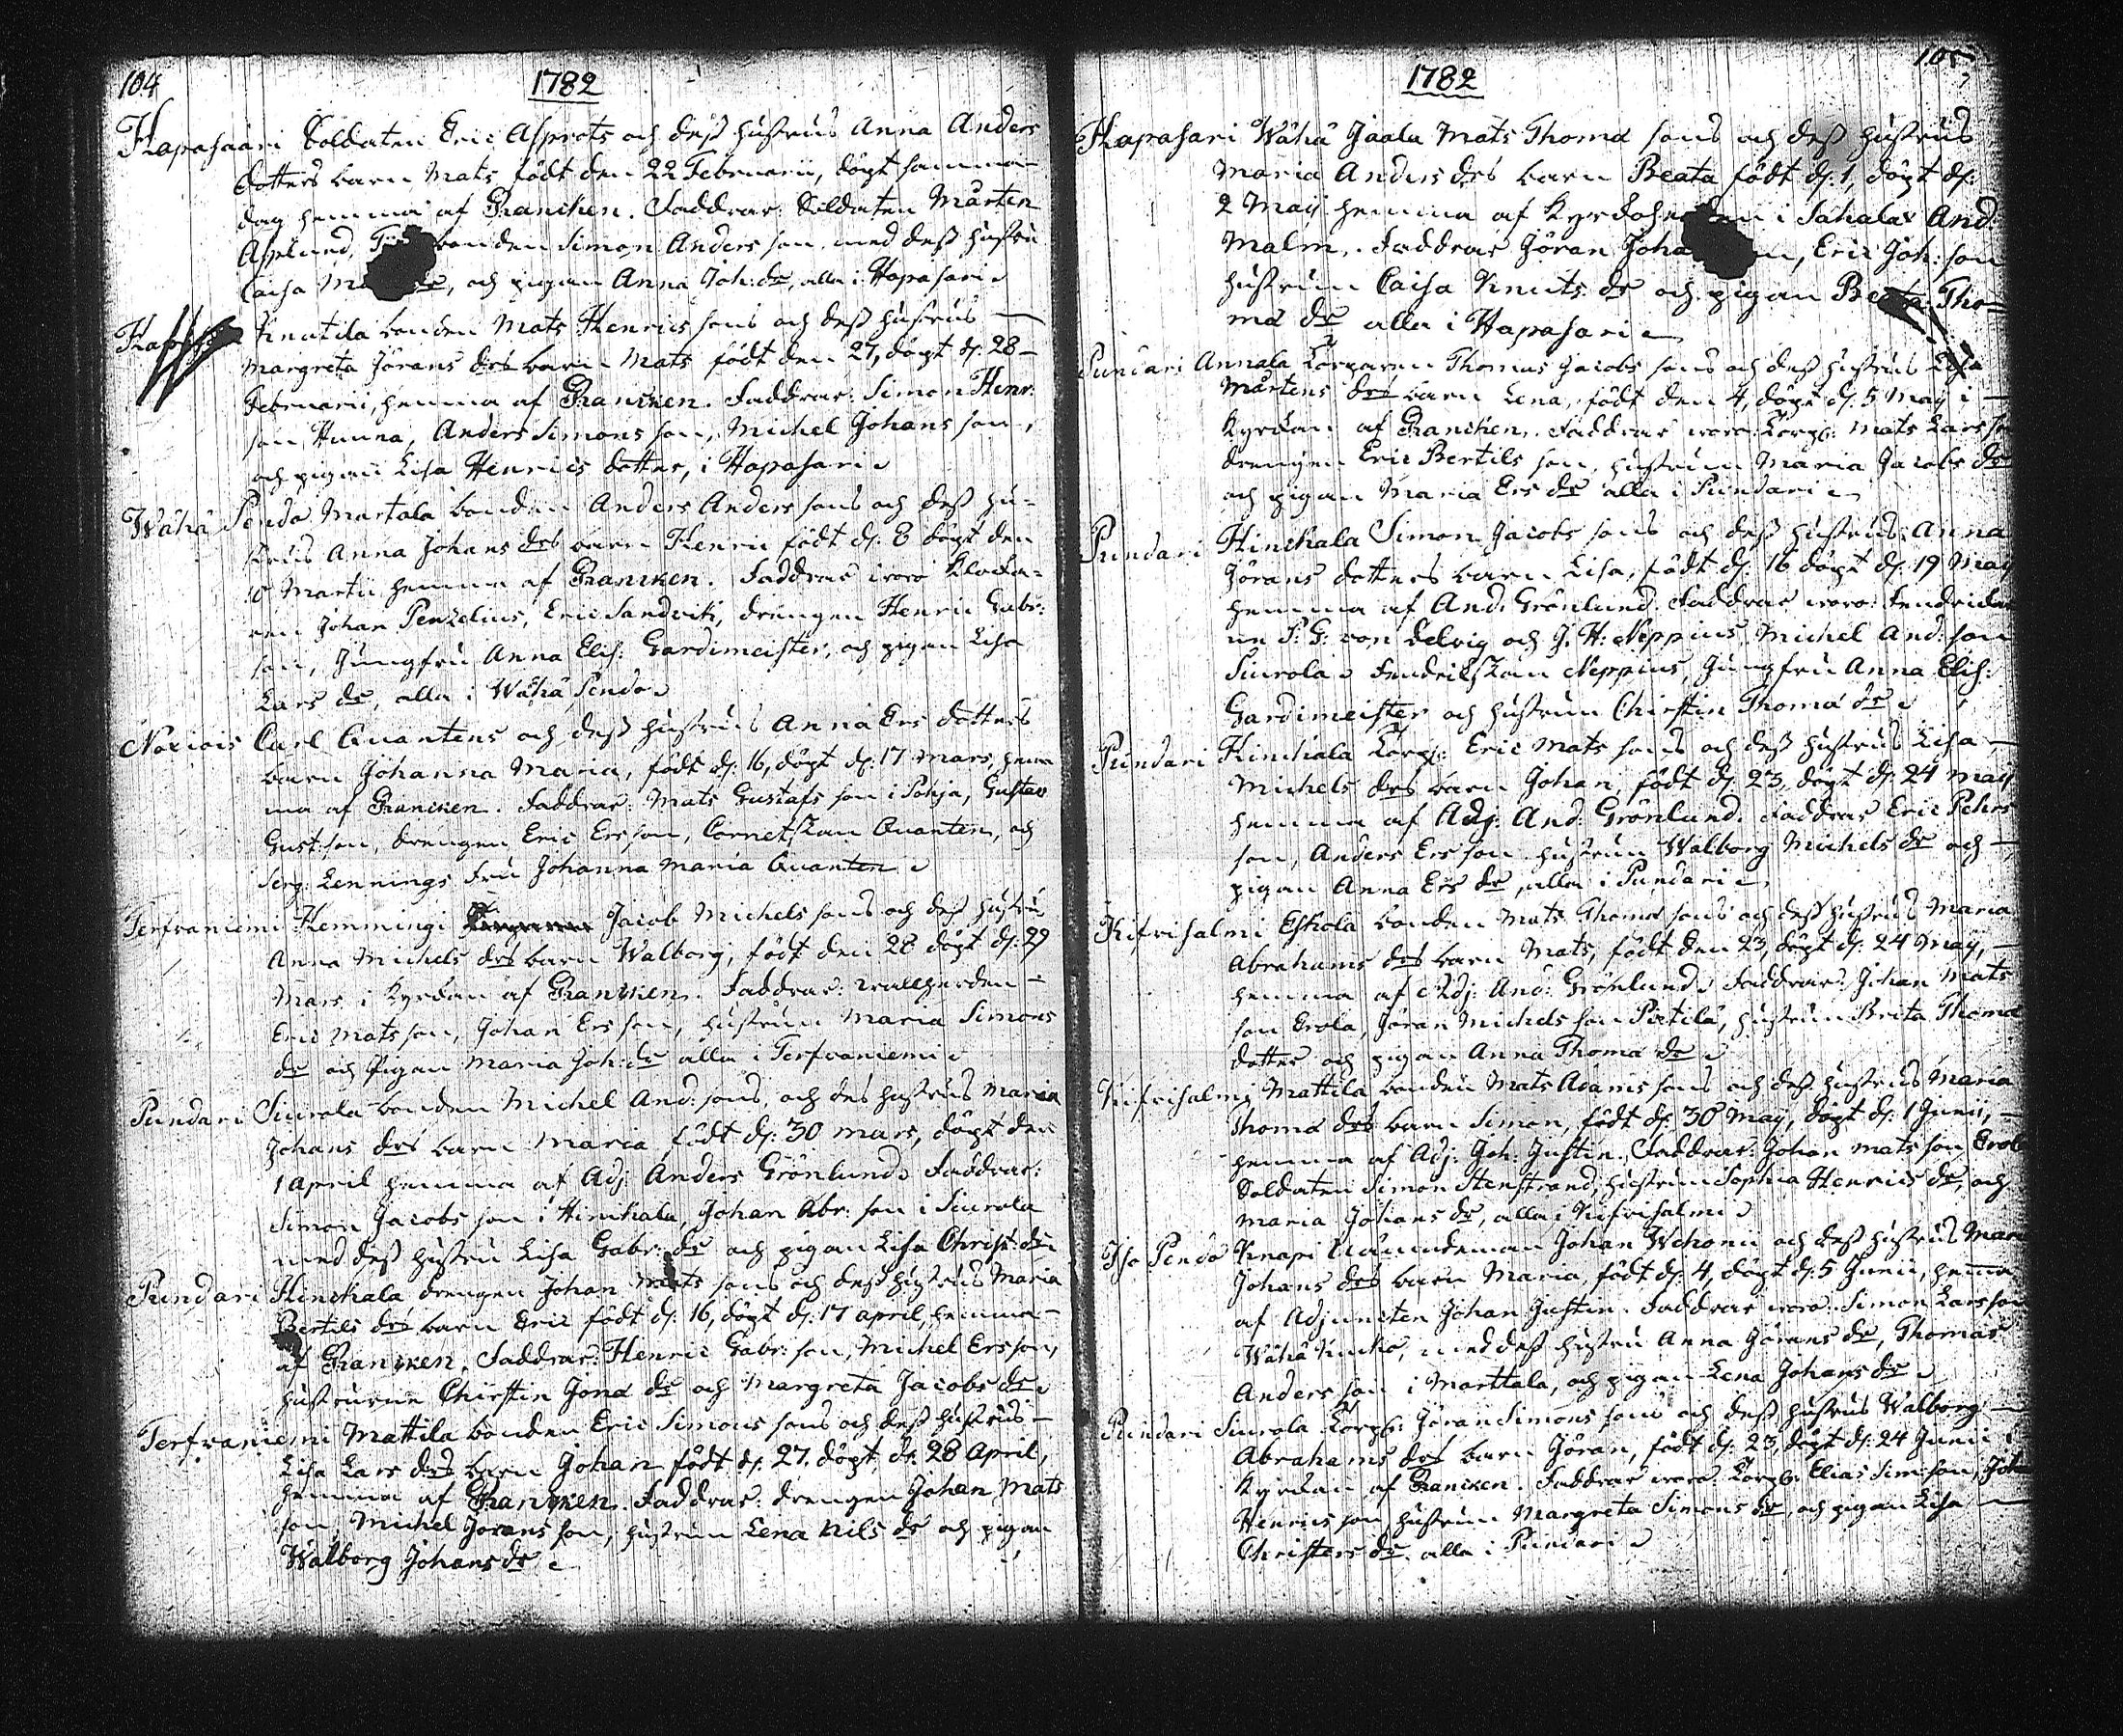 104
1782
Hapasaari Soldaten Eric Asprots och dess hustrus Anna Anders
dotters barn Mats född den 22 Februarii, döpt samma
dag hemma af Prancken. Faddrar: Soldaten Mårten
Asplund, bonden Simon Anders son, med dess hustru
Caisa dr, och pigan Anna Joh: dr, alla i Hapasari
Knutila bonden Mats Henrics sons och dess hustrus
Margreta Jörans drs barn Mats född den 27, döpt d: 28
Februarii, hemma af Prancken. Faddrar: Simon Henr:
son Hunna, Anders Simons son, Michel Johans son,
och pigan Lisa Henrics dotter, i Hapasari
Wähä Pendo Martala bonden Anders Anders sons och dess hu-
strus Anna Johans drs barn Henric född d: 8 döpt den
10 Martii hemma af Prancken. Faddrar woro Klocka-
ren Johan Penzelius, Eric Sandvik, drengen Henric Gabr:
son, Jungfru Anna Elis: Gardimeister, och pigan Lisa
Lars dr, alla i Wähä Pendo
Carl Quantens och dess hustrus Anna Ers dotters
barn Johanna Maria, född d: 16, döpt d: 17 Mars, hem
ma af Prancken. Faddrar: Mats Gustafs son i Pohja, Gustav
Gust: son, drengen Eric Ersson, Cornetskan Quanten, och
Serg: Lennings Fru Johanna Maria Quanten
Terfvaniemi Hemmingi Jacob Michels sons och dess hustrus
Anna Michels drs barn Walborg, född den 28 döpt d: 29
Mars i Kyrckan af Prancken. Faddrar:
Eric Mats son, Johan Ers son, hustrun Maria Simons
dr och Pigan Maria Joh: dr alla i Terfvaniemi
Pundari Siurola bonden Michel And: sons, och des hustrus Maria
Johans drs barn Maria, född d: 30 Mars, döpt den
1 April hemma af Adj: Anders Grönlund. Faddrar:
Simon Jacobs son i Hinchala, Johan Abr: son i Siurola
med dess hustru Lisa Gabr: dr och pigan Lisa Christ: dr
Pundari Hinchala drengen Johan Mats sons och dess hustrus Maria
Bertils drs barn Eric född d: 16, döpt d: 17 April, hemma
af Prancken. Faddrar: Henric Gabr: son, Michel Ersson,
hustrurne Chirstin Jona dr och Margreta Jacobs dr
Terfvaniemi Mattila bonden Eric Simons sons och dess hustrus
Lisa Lars drs barn Johan född d: 27, döpt d: 28 April,
hemma af Prancken. Faddrar: drengen Johan Mats
son, Michel Jörans son, hustrun Lena Nils dr och pigan
Walborg Johans dr
105
1782
Hapasari Wähä Jaala Mats Thomæ sons och dess hustrus
Maria Anders drs barn Beata född d: 1, döpt d:
2 Maij hemma af i Sahalax And:
Malm. Faddrar Jöran, Eric Joh: son
hustrun Caisa Knuts dr och pigan Beata Tho-
mæ dr alla i Hapasari
Pundari Annala Torparen Thomas Jacobs sons och dess hustrus Lisa
Mårtens drs barn Lena, född den 4, döpt d: 5 Maij i
Kyrckan af Prancken. Faddrar woro: Torp: Mats Lars son
drengen Eric Bertils son, hustrun Maria Jacobs dr
och pigan Maria Ers dr alla i Pundari
Pundari Hinchala Simon Jacobs sons och dess hustrus Anna
Jörans dotters barn Lisa, född d: 16 döpt d: 19 Maij
hemma af And: Grönlund. Faddrar woro: Fendrickar
ne P: G: von Delvig och J. H: Neppius, Michel And: son
Siurola. Fendrikskan Neppius, Jungfru Anna Elis:
Gardimeister och hustrun Chirstin Thomæ dr
Pundari Hinchala Torp: Eric Mats sons och dess hustrus Lisa
Michels drs barn Johan, född d: 23, döpt d: 24 Maij
hemma af Adj: And: Grönlund. Faddrar Eric Pehrs
son, Anders Ers son, hustrun Walborg Michels dr och
pigan Anna Ers dr, alla i Pundari
Kifvisalmi Eskola bonden Mats Thomæ sons och dess hustrus Maria
Abrahams drs barn Mats, född den 23, döpt d: 24 Maij,
hemma af Adj: And: Grönlund. Faddrar: Johan Mats
son Erola, Jöran Michels son Pietilä, hustrun Brita Thomæ
dotter och pigan Anna Thomæ dr
Kifvisalmi Mattila bonden Mats Adams sons och dess hustrus Maria
Thomæ drs barn Simon, född d: 30 Maij, döpt d: 1 Junii,
hemma af Adj: Joh: Justin. Faddrar: Johan Mats son Erola
Soldaten Simon Stenstrand, hustrun Sophia Henrics dr, och
Maria Johans dr, alla i Kifvisalmi
Iso Pendo Knapi Nämndeman Johan Wchonu och dess hustrus Maria
Johans drs barn Maria, född d: 4, döpt d: 5 Junii, hemma
af Adjuncten Johan Justin. Faddrar woro: Simon Larsson
Wähä Kucko, med dess hustru Anna Jörans dr, Thomas
Anders son i Marttala, och pigan Lena Johans dr
Pundari Siurola Torp: Jöran Simons sons och dess hustrus Walborg
Abrahams drs barn Jöran, född d: 23, döpt d: 24 Junii i
Kyrckan af Prancken. Faddrar woro: Torp: Elias Sim: son, Joh
Henrics son, hustrun Margreta Simons dr, och pigan Lisa
Christers dr, alla i Pundari